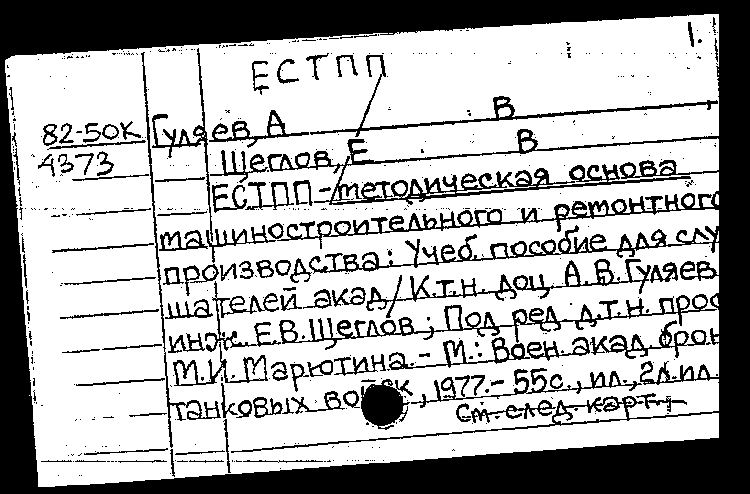 1.
ЕСТПП
82-50К Гуляев, А В
4373 Щеглов, Е В
ЕСТПП - методическая основа
машиностроительного и ремонтного
производства: Учеб. пособие для слу
шателей акад / К.т.н. доц. А.В.Гуляев
инж. Е.В.Щеглов; Под ред. д.т.н. проф
М.И. Марютина. - М.: Воен. акад. брон
танковых войск, 1977. - 55с., ил., 2л.ил.
См. след. карт.